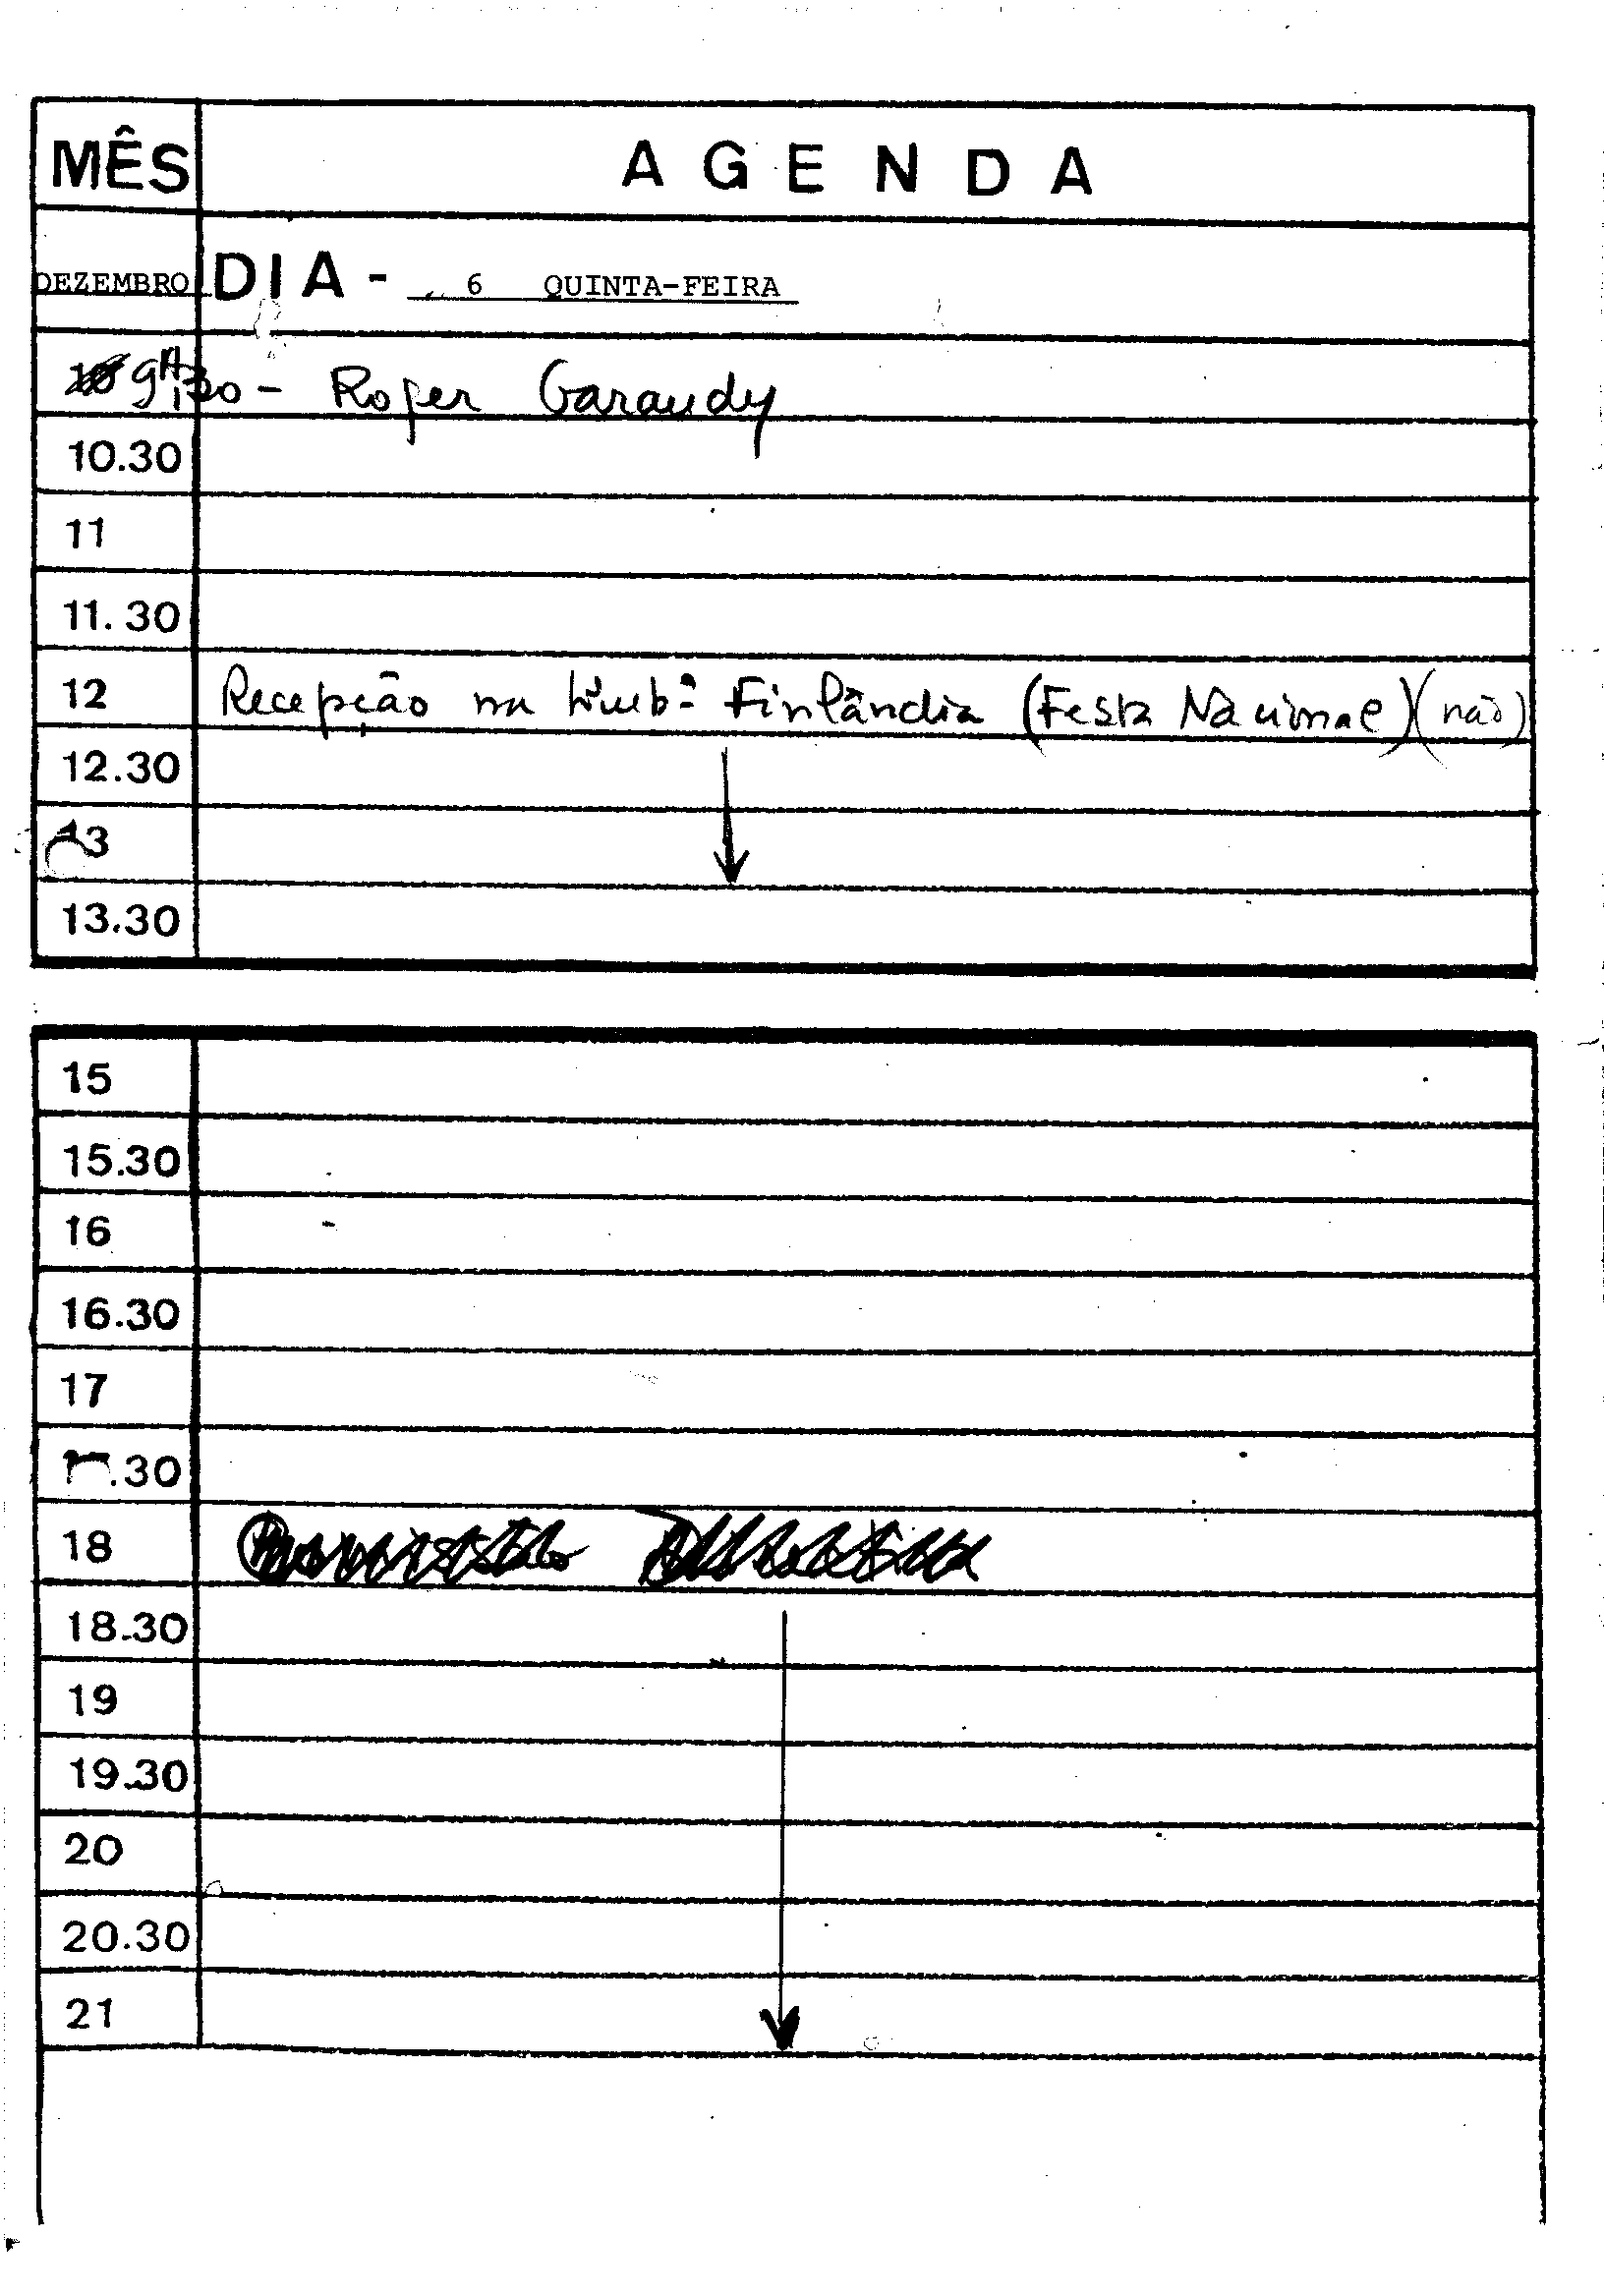 MÊS AGENDA
DEZEMBRO DIA - 6 QUINTA-FEIRA
9H,30 - Roger Garaudy
10.30
11
11.30
12 Recepção na Finlândia (Festa Nacional) (não)
12.30
13
13.30
15
15.30
16
16.30
17
.30
18
18.30
19
19.30
20
20.30
21